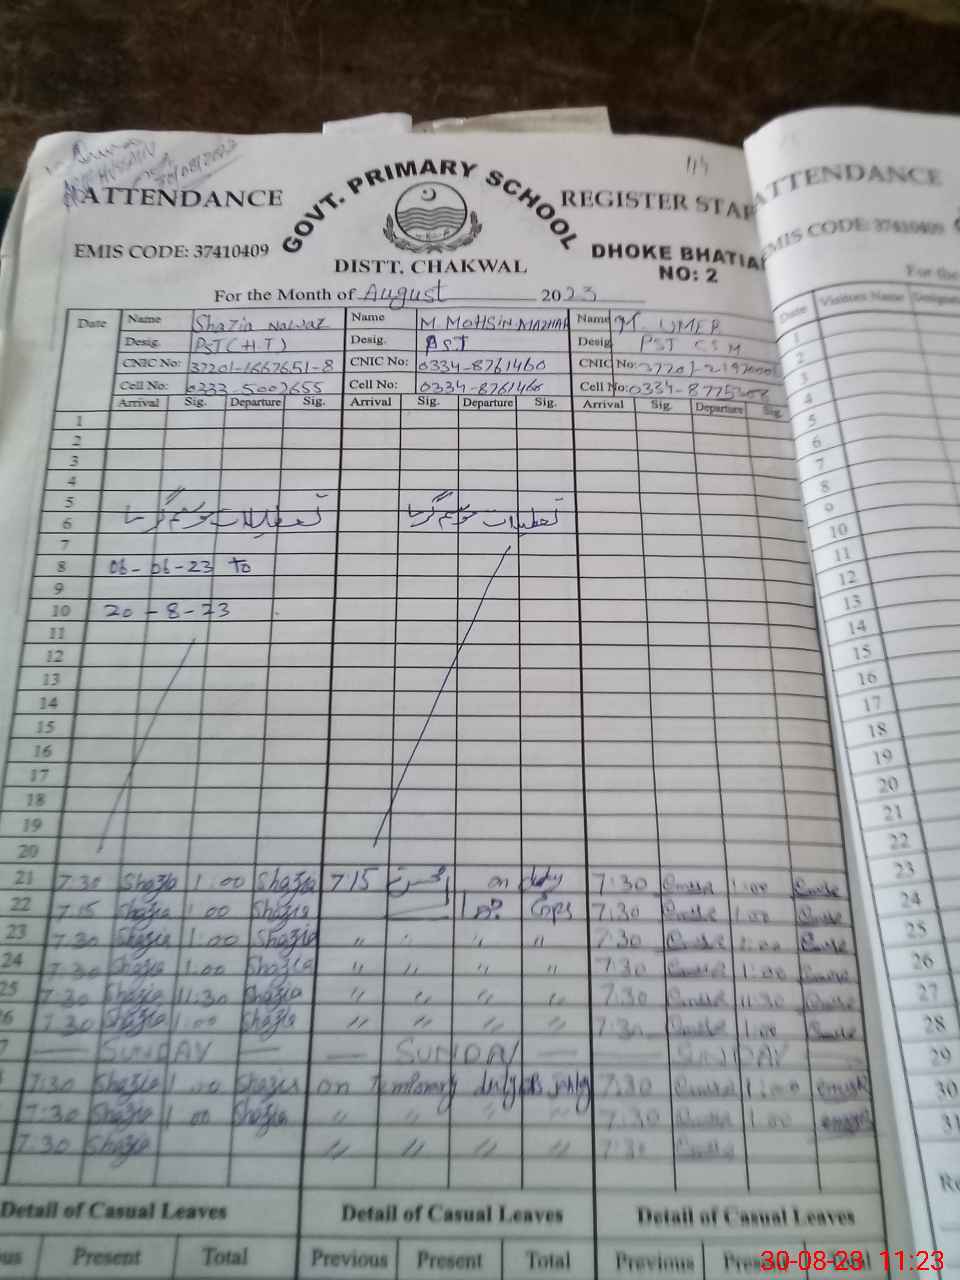 HUSSAIN
ATTENDANCE
GOVT. PRIMARY SCHOOL
REGISTER STAF
EMIS CODE: 37410409
DISTT. CHAKWAL
DHOKE BHATIA
NO: 2
For the Month of August 2023
Date Name Shazia Nawaz Name M. MOHSIN MAZHAR Name M. UMER
Desig. PST (H.T) Desig. PST Desig PST CSM
CNIC No: 37201-1667651-8 CNIC No: 0334-8761460 CNIC No:
Cell No: 0333-5007655 Cell No: 0334-8761460 Cell No:
Arrival Sig. Departure Sig. Arrival Sig. Departure Sig. Arrival Sig. Departure Sig.
1
2
3
4
5
6 تعطیلات موسم گرما تعطیلات موسم گرما
7
8 06-06-23 to
9
10 20-8-23
11
12
13
14
15
16
17
18
19
20
21 7:30 Shazia 1:00 Shazia 7:15 on duty 7:30 1:00
22 7:15 Shazia 1:00 Shazia 7:30 1:00
23 7:30 Shazia 1:00 Shazia " " " " 7:30 1:00
24 7:30 Shazia 1:00 Shazia " " " " 7:30 1:00
25 7:30 Shazia 11:30 Shazia " " " " 7:30 11:30
6 7:30 Shazia 1:00 Shazia " " " " 7:30 1:00
7 — SUNDAY — — SUNDAY — — SUNDAY —
7:30 Shazia 1:00 Shazia on Temporary duty 7:30 1:00
7:30 Shazia 1:00 Shazia " " " " 7:30 1:00
7:30 Shazia " " " " 7:30
Detail of Casual Leaves Detail of Casual Leaves Detail of Casual Leaves
ous Present Total Previous Present Total Previous
ATTENDANCE
EMIS CODE: 37410409
For the
Date Visitors Name
1
2
3
4
5
6
7
8
9
10
11
12
13
14
15
16
17
18
19
20
21
22
23
24
25
26
27
28
29
30
31
30-08-23 11:23